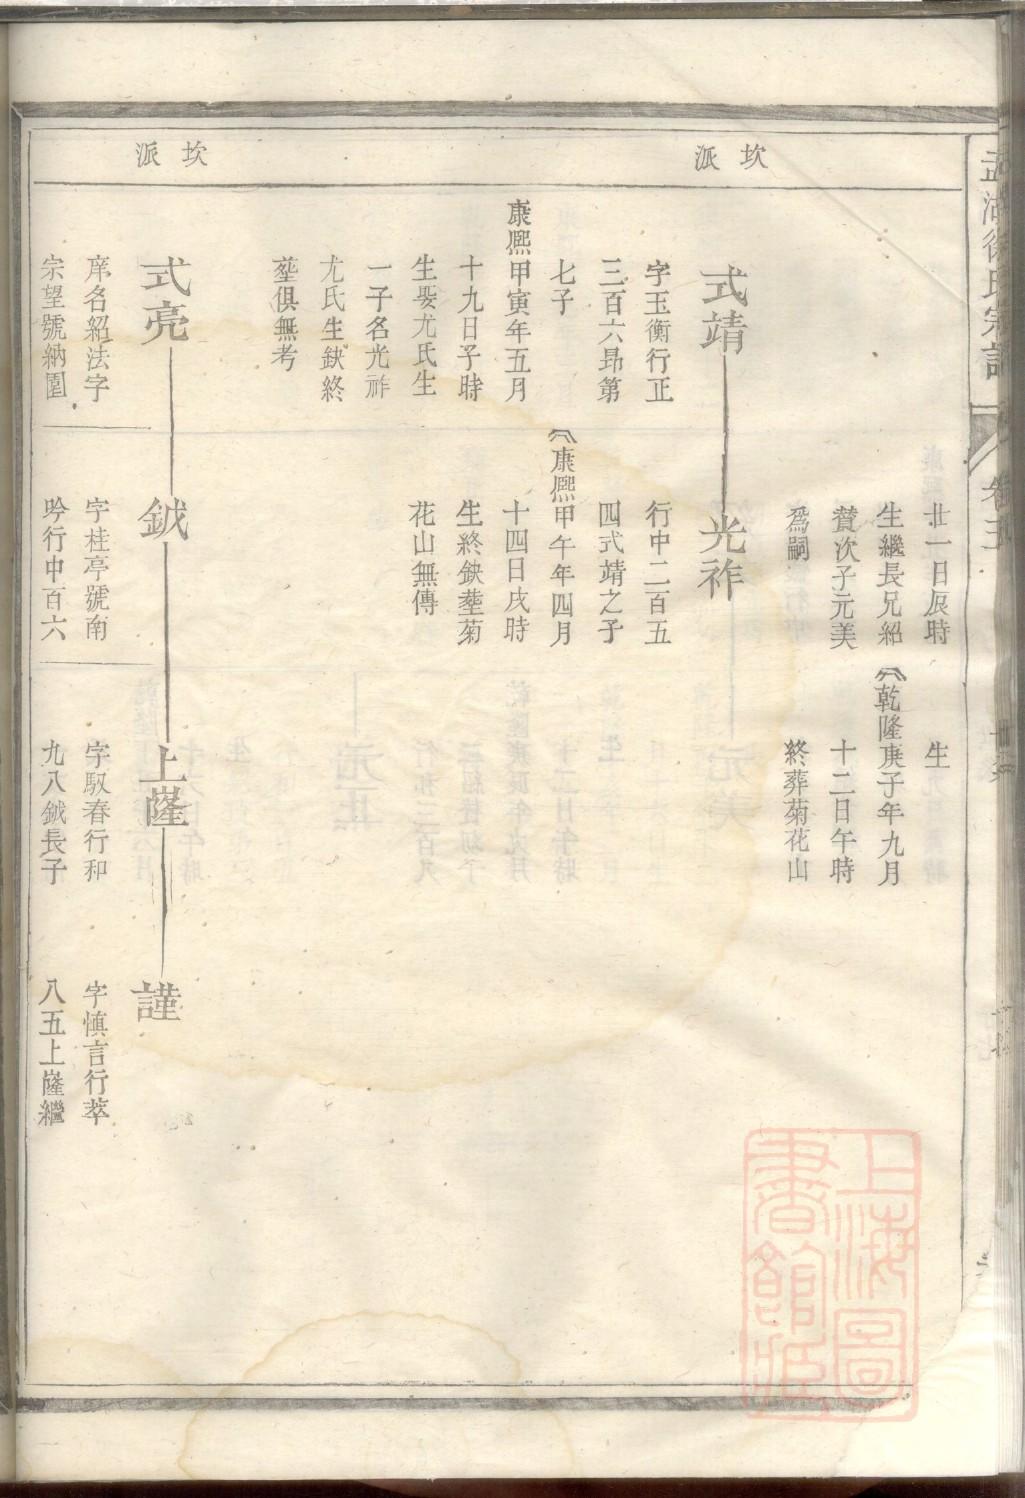 坎派
坎派
廿一日辰時
生繼長兄紹
贊次子元美
爲嗣
生
乾隆庚子年九月
十二日午時
終葬菊花山
式靖
字玉衡行正
三百六昻第
七子
康熙甲寅年五月
十九日子時
生娶尤氏生
一子名光祚
尤氏生缺終
塟俱無考
光祚
行中二百五
四式靖之子
康熙甲午年四月
十四日戌時
生終缺塟菊
花山無傳
式亮
庠名紹法字
宗望號納園
鉞
字桂亭號南
吟行中百六
上嶐
字馭春行和
九八鉞長子
謹
字慎言行萃
八五上嶐繼
上海圖
書館藏